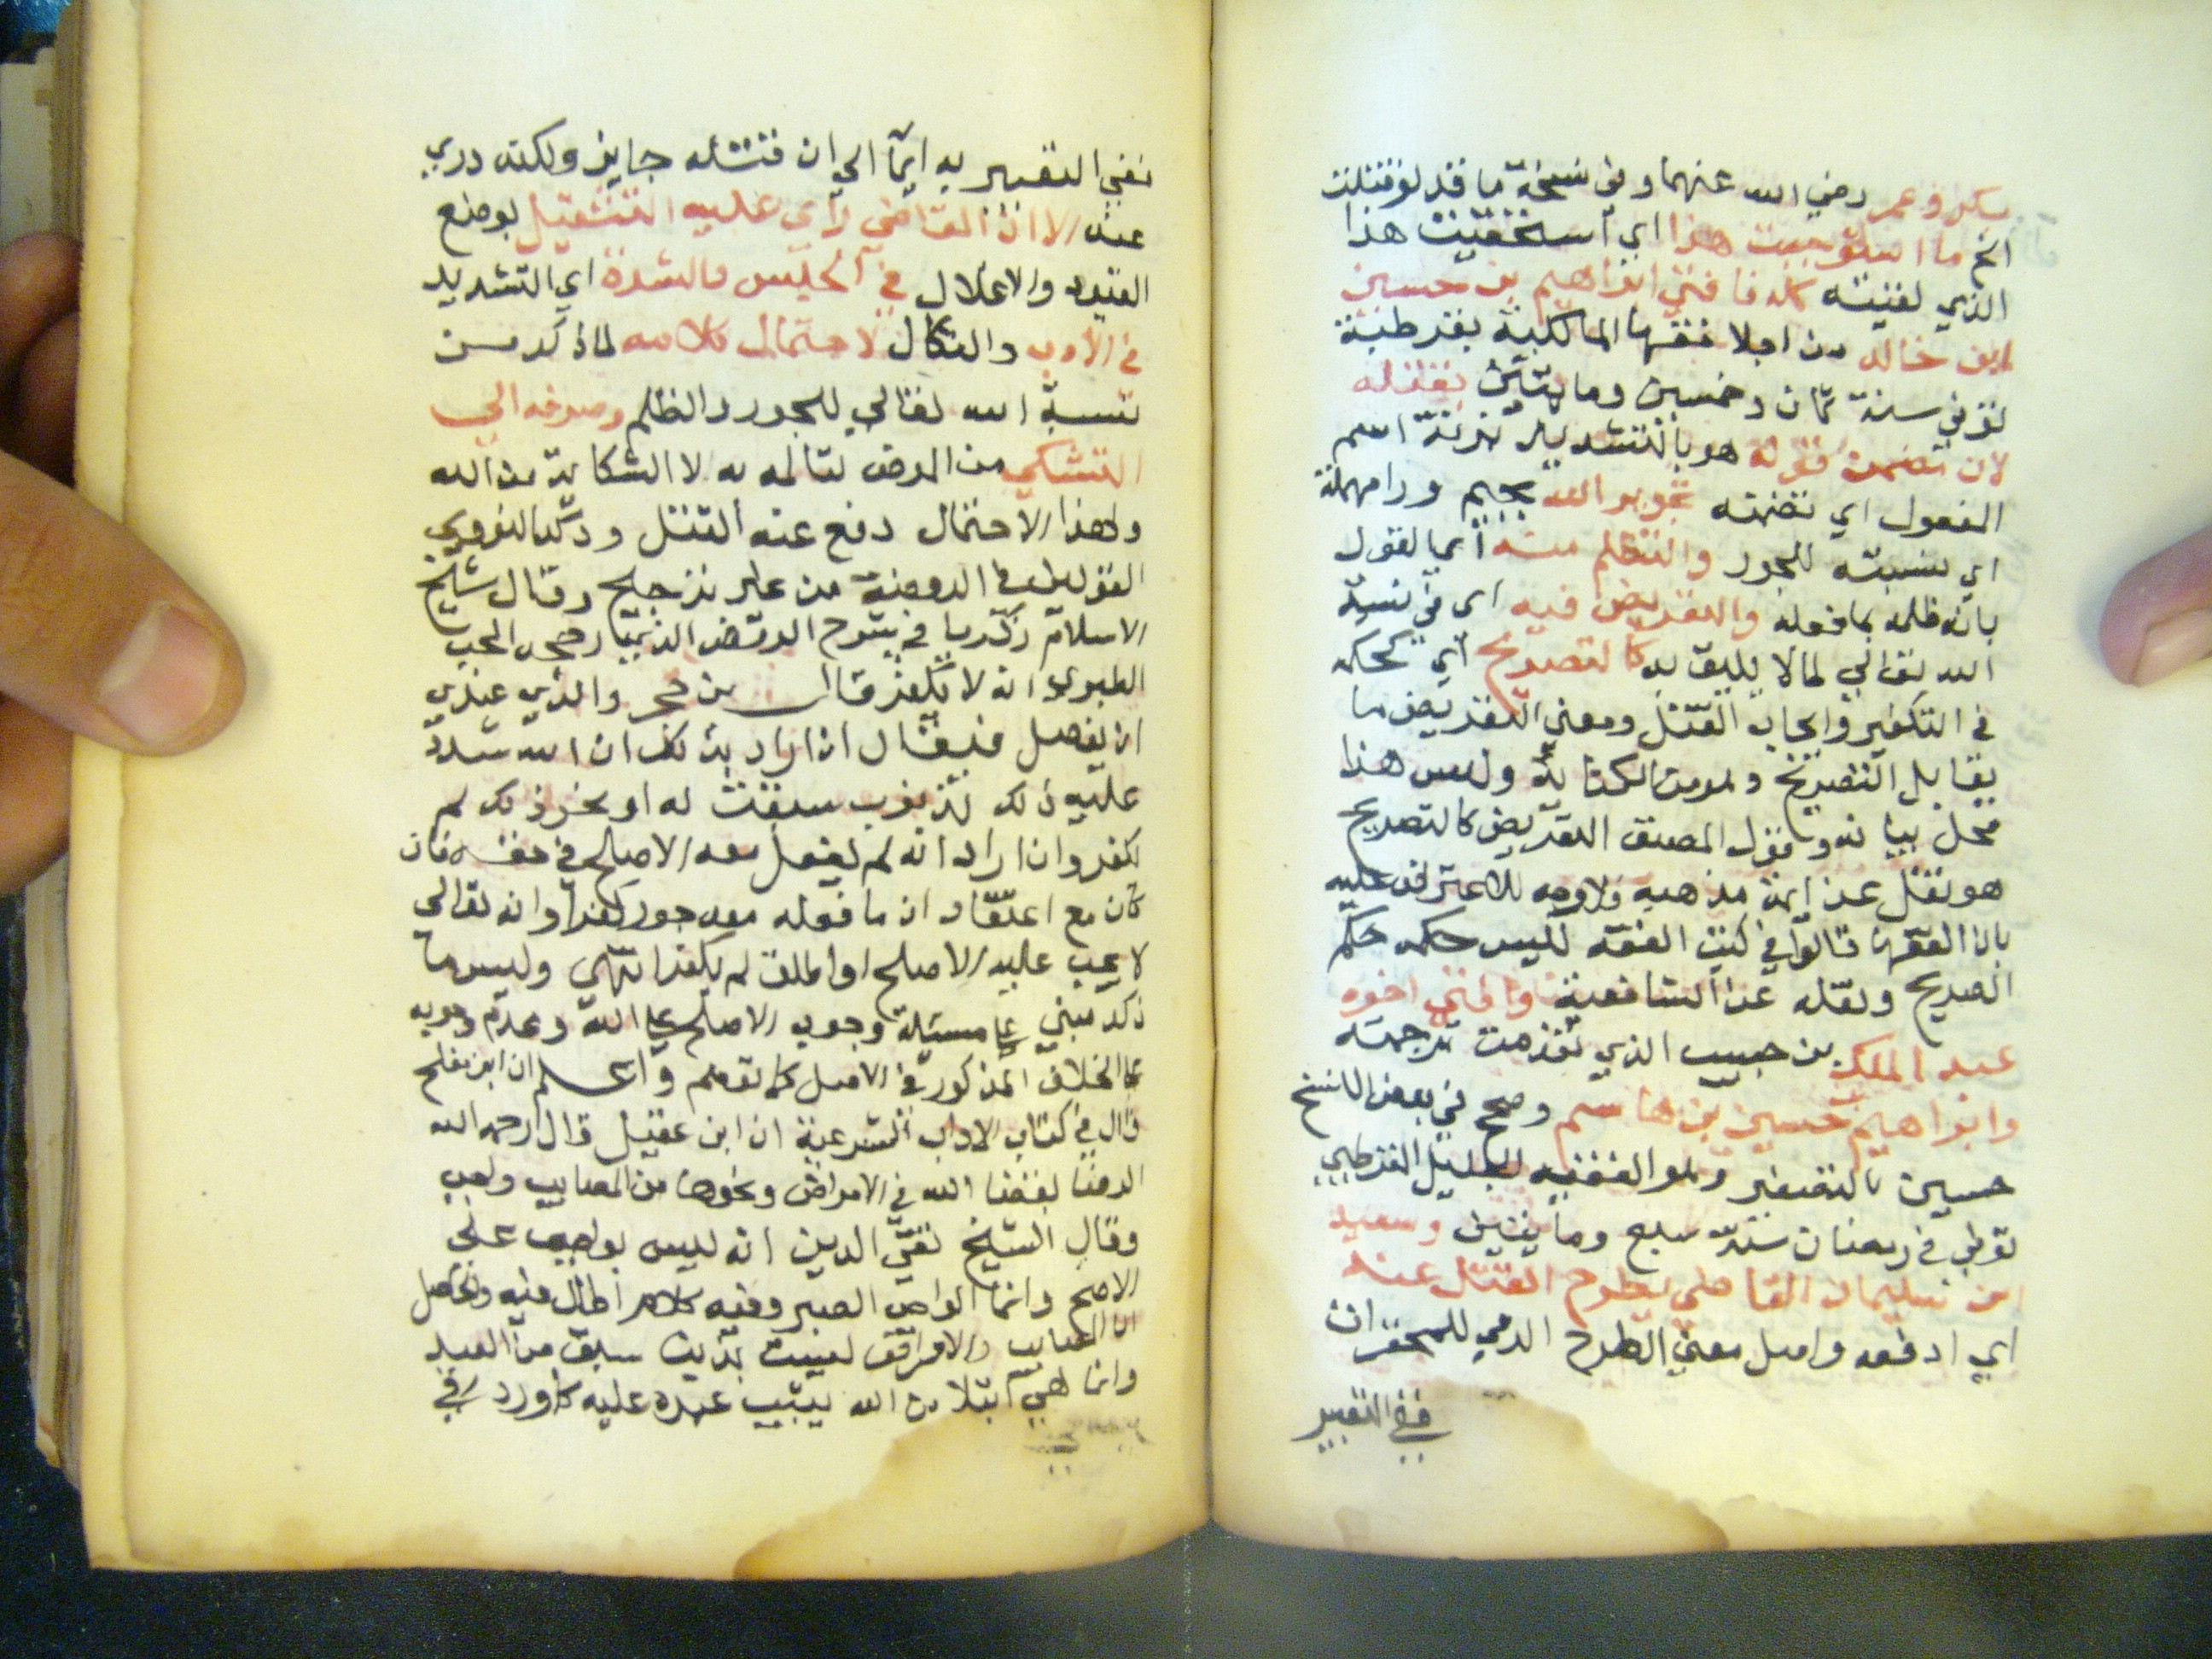 بكر وعمر رضي الله عنهما وفي نسخة ما قد لو قتلت
الخ ما استوجبت هذا اي استحقيت هذا
الذي لقيته كله فافتي ابراهيم بن حسين
ابن خالد من اجلا فقها المالكية بقرطبة
توفي سنة ثمان وخمسين ومايتين بقتله
لان مضمن قوله هو بالتشديد بزنة اسم
المفعول اي تضمنه تجوير الله بجيم ورا مهملة
اي نسبته للجور والتظلم منه ايما لقول
بانه ظلمه بما فعله والتعريض فيه اي في نسبة
الله تعالي لما لا يليق به كالتصريح اي كحكمه
في التكفير وايجاب القتل ومعني التعريض ما
يقابل التصريح وهو من الكناية وليس هذا
محل بيانه وقول المصنف التعريض كالتصريح
هو نقل عن ايمة مذهبه فلا وجه للاعتراض عليه
بان الفقها قالوا في كتب الفقه ليس حكمه حكم
الصريح ونقله عن الشافعية وافتي اخوه
عبد الملك بن حبيب الذي تقدمت ترجمته
وابراهيم حسين بن عاصم وصحح في بعض النسخ
حسين بالتصغير وهو الفقيه الجليل القرطبي
توفي في رمضان سنة سبع ومايتين وسعيد
ابن سليمان القاضي بطرح القتل عنه
اي ادفعه واصل معني الطرح الرمي للمحقرات
ففي التعبير
ففي التعبير به ايما الي ان قتله جايز ولكنه دري
عنه الا ان القاضي راي عليه التثقيل بوضع
القيود والاغلال في الحبس والشدة اي التشديد
في الادب والنكال لاحتمال كلامه لما ذكر من
نسبة الله تعالي للجور والظلم وصرفه الي
التشكي من المرض لتالمه به لا الشكاية من الله
ولهذا الاحتمال دفع عنه القتل وذكر النووي
القولين في الروضة من غير ترجيح وقال شيخ
الاسلام زكريا في شرح الروض الذي رجحه المحب
الطبري انه لا يكفر قال بن حجر والذي عندي
ان يفصل فيقال ان اراد بذلك ان الله شدد
عليه ذلك لذنوب سبقت له او نحو ذلك لم
يكفر وان اراد انه لم يفعل معه الاصلح في حقه فان
كان مع اعتقاد ان ما فعله معه جور كفر وانه تعالي
لا يجب عليه الاصلح او اطلق لم يكفر انتهي وليس ما
ذكر مبني علي مسئلة وجوب الاصلح علي الله وعدم وجوبه
علي الخلاف المذكور في الاصل كما تقدم واعلم ان ابن مفلح
قال في كتاب الاداب الشرعية ان ابن عقيل قال رحمه الله
الرضا بقضا الله في الامراض ونحوها من المصايب واجب
وقال الشيخ تقي الدين انه ليس بواجب علي
الاصح وانما الواجب الصبر وفيه كلام اطال فيه والحاصل
ان المصايب والامراض ليست بذنب سبق من العبد
وانما هي ابتلا من الله يثيب عبده عليه كما ورد في